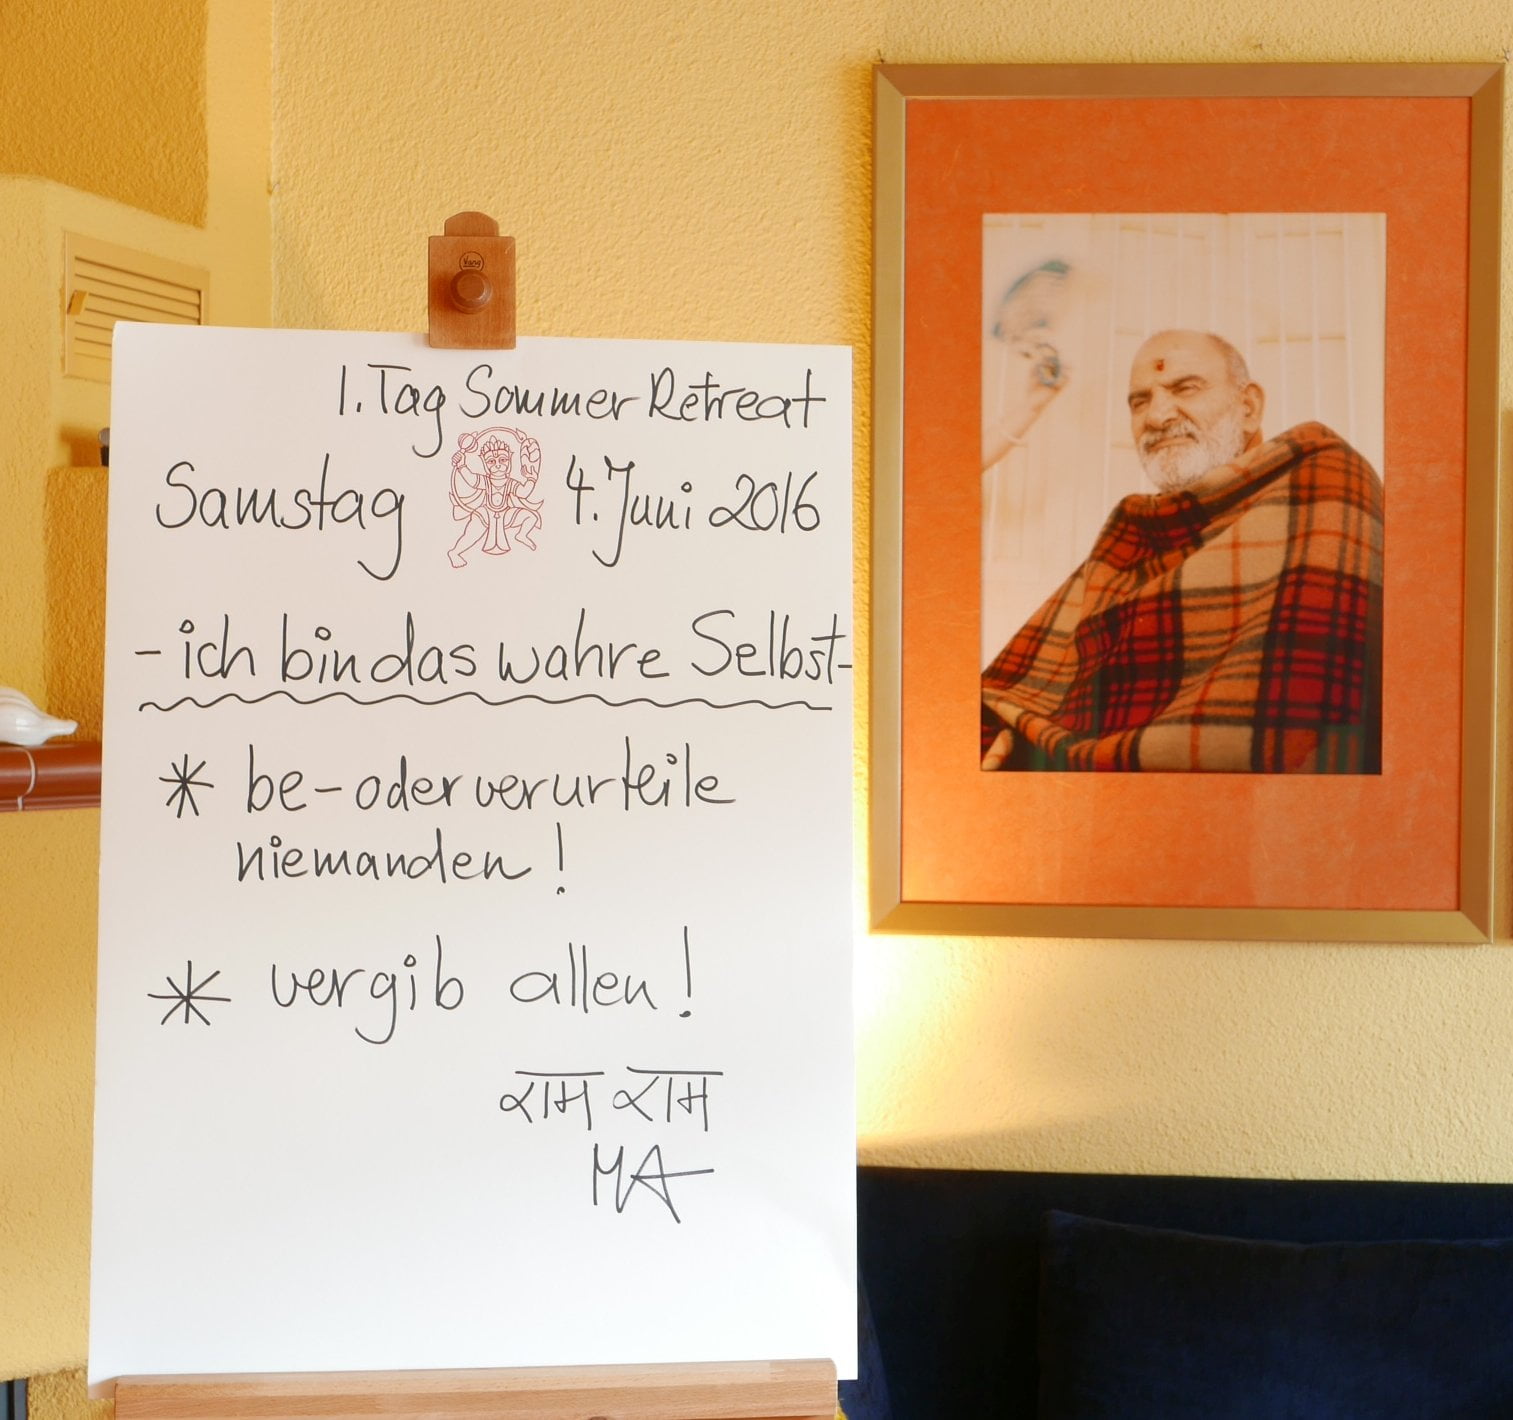 Vang
1. Tag Sommer Retreat
Samstag 4. Juni 2016
- ich bin das wahre Selbst -
* be- oder verurteile
niemanden!
* vergib allen!
राम राम
MA